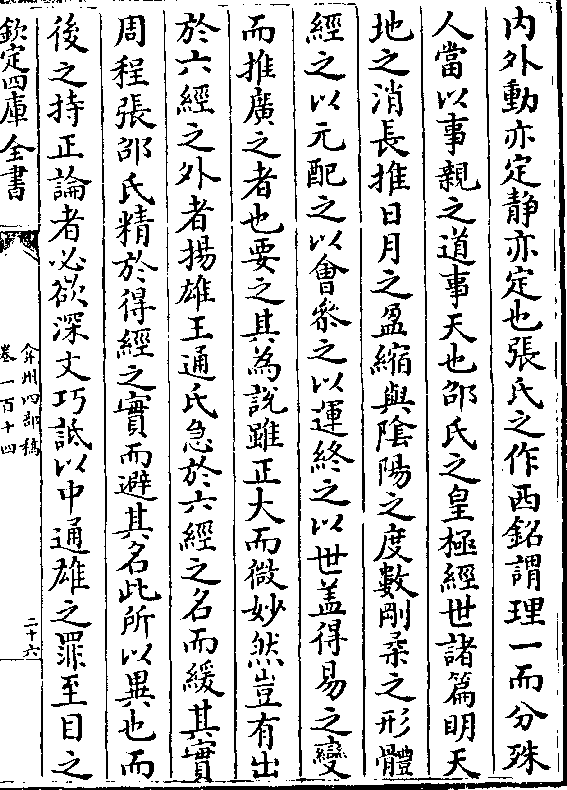 內外動亦定静亦定也張氏之作西銘謂理一而分殊
人當以事親之道事天也邵氏之皇極經世諸篇明天
地之消長推日月之盈縮與陰陽之度數剛柔之形體
經之以元配之以會參之以運終之以世盖得易之變
而推廣之者也要之其為說雖正大而微妙然豈有出
於六經之外者揚雄王通氏急於六經之名而緩其實
周程張邵氏精於得經之實而避其名此所以異也而
後之持正論者必欲深文巧詆以中通雄之罪至目之
欽定四庫全書
弇州四部稿
卷一百十四
二十六